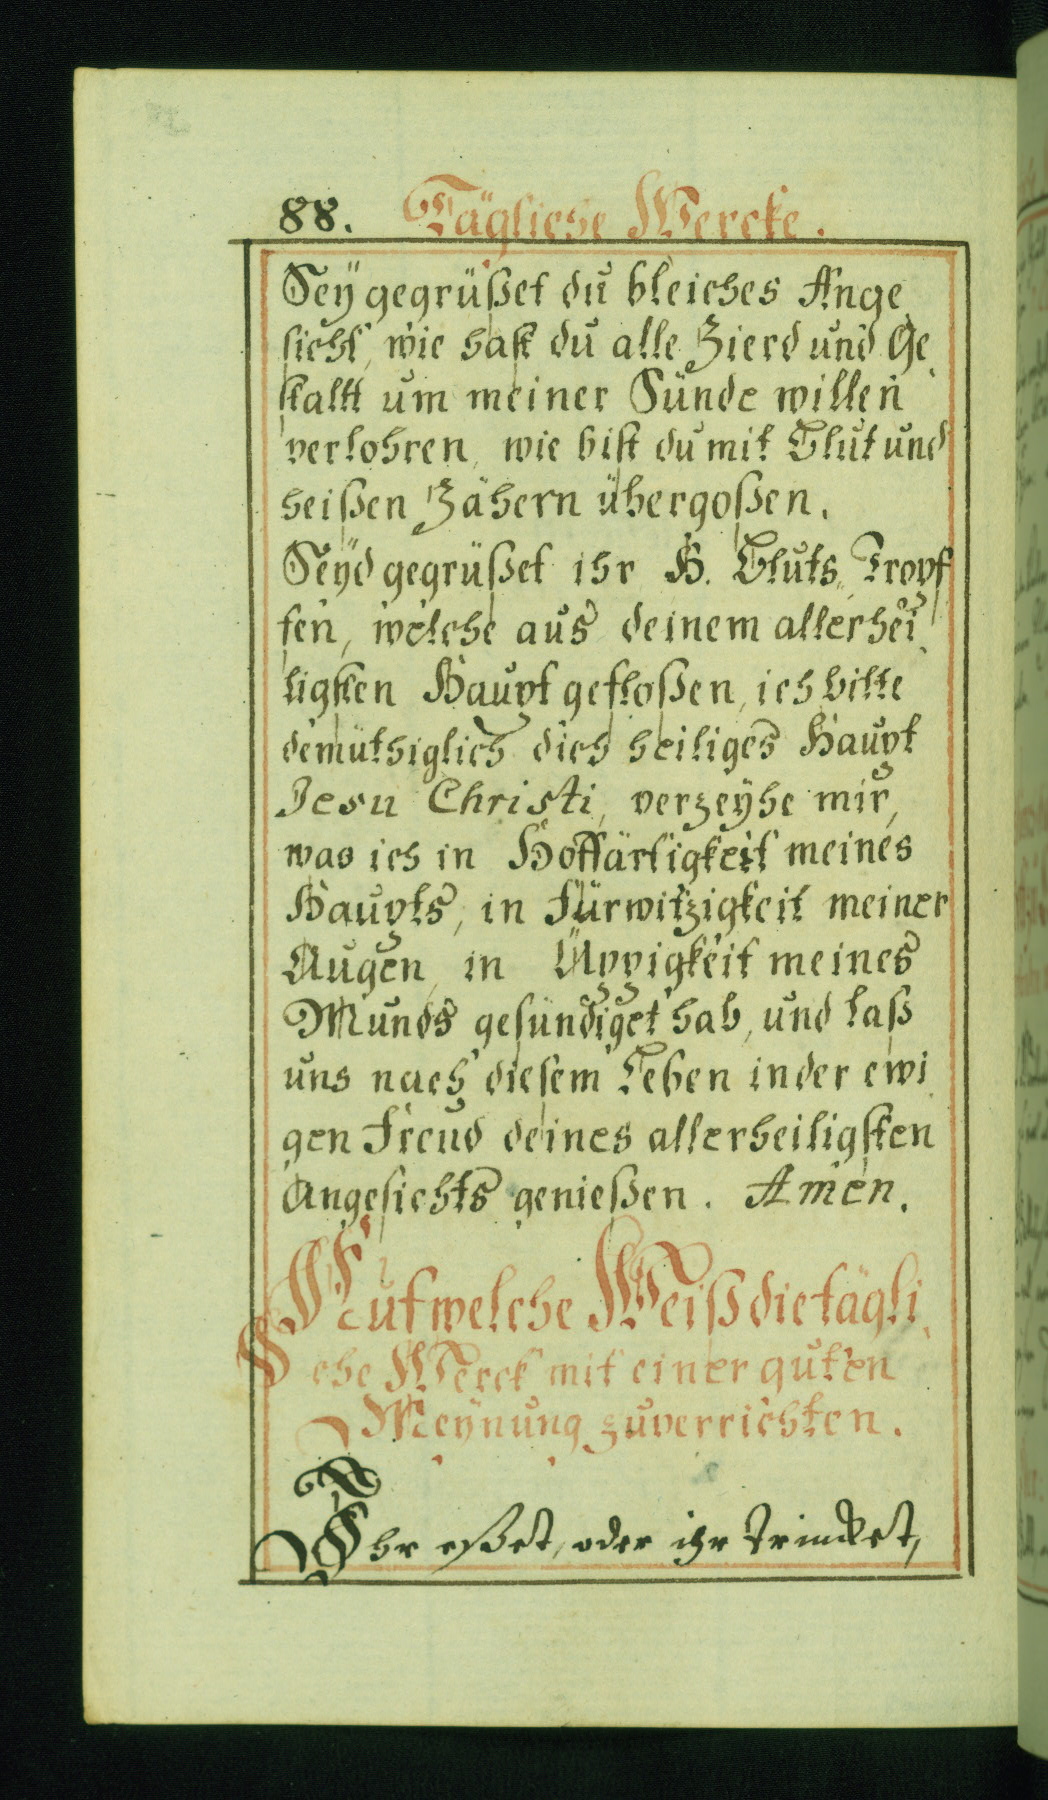 88. Tägliche Wercke.
Seÿ gegrüßet du bleiches Ange
sicht, wie hast du alle Zierd und Ge
staltt um meiner Sünde willen
verlohren, wie bist du mit Blut und
heißen Zähern übergoßen.
Seÿd gegrüßet ihr H. Bluts, Tropf
fen, welche aus deinem allerhei
ligsten Haupt gefloßen, ich bitte
demüthiglich dich heiliges Haupt
Jesu Christi, verzeÿhe mir,
was ich in Hoffärtigkeit meines
Haupts, in Fürwitzigkeit meiner
Augen, in Üppigkeit meines
Munds gesündiget hab, und laß
uns nach diesem Leben in der ewi
gen Freud deines allerheiligsten
Angesichts genießen. Amen.
Auf welche Weiß die tägli
che Werck mit einer guten
Meÿnung zuverrichten.
Ihr eßet, oder ihr trincket,